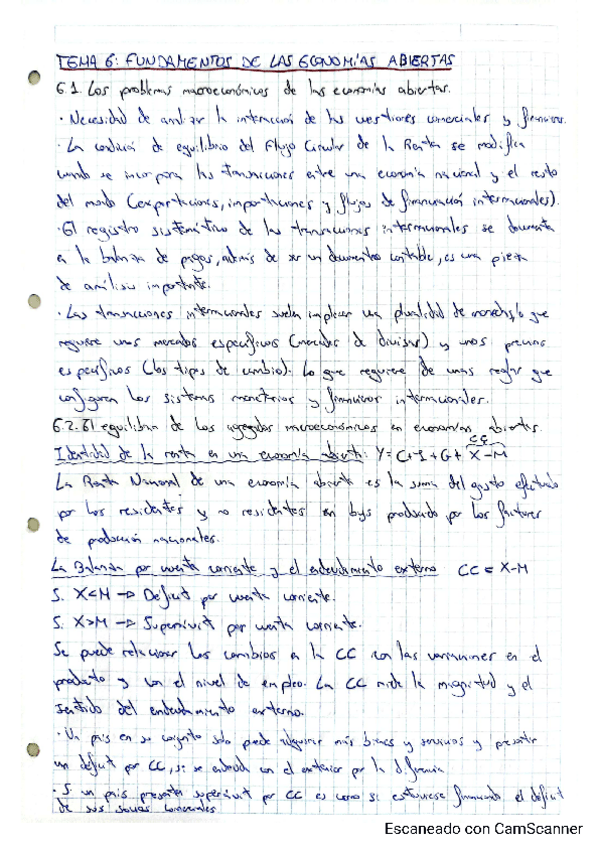 TEMA 6: FUNDAMENTOS DE LAS ECONOMÍAS ABIERTAS
6.1. Los problemas macroeconómicos de las economías abiertas.
· Necesidad de analizar la interacción de las cuestiones comerciales y financieras.
· La condición de equilibrio del Flujo Circular de la Renta se modifica
cuando se incorpora las transacciones entre una economía nacional y el resto
del mundo (exportaciones, importaciones y flujos de financiación internacionales).
· El registro sistemático de las transacciones internacionales se documenta
en la balanza de pagos, además de ser un documento contable, es una pieza
de análisis importante.
· Las transacciones internacionales suelen implicar una pluralidad de monedas, lo que
requiere unos mercados específicos (mercados de divisas) y unos precios
específicos (los tipos de cambio). Lo que requiere de unas reglas que
configuran los sistemas monetarios y financieros internacionales.
6.2. El equilibrio de los agregados macroeconómicos en economías abiertas.
Identidad de la renta en una economía abierta: Y=C+I+G+X-M
CC
La Renta Nacional de una economía abierta es la suma del gasto efectuado
por los residentes y no residentes en bys producido por los factores
de producción nacionales.
La Balanza por cuenta corriente y el endeudamiento externo CC = X-M
Si X<M → Déficit por cuenta corriente.
Si X>M → Superávit por cuenta corriente.
Se puede relacionar los cambios a la CC con las variaciones en el
producto y con el nivel de empleo. La CC mide la magnitud y el
sentido del endeudamiento externo.
· Un país en su conjunto solo puede adquirir más bienes y servicios y presentar
un déficit por CC, si se endeuda con el exterior por la diferencia
· Si un país presenta superávit por CC es como si estuviese financiando el déficit
de sus socios comerciales
Escaneado con CamScanner